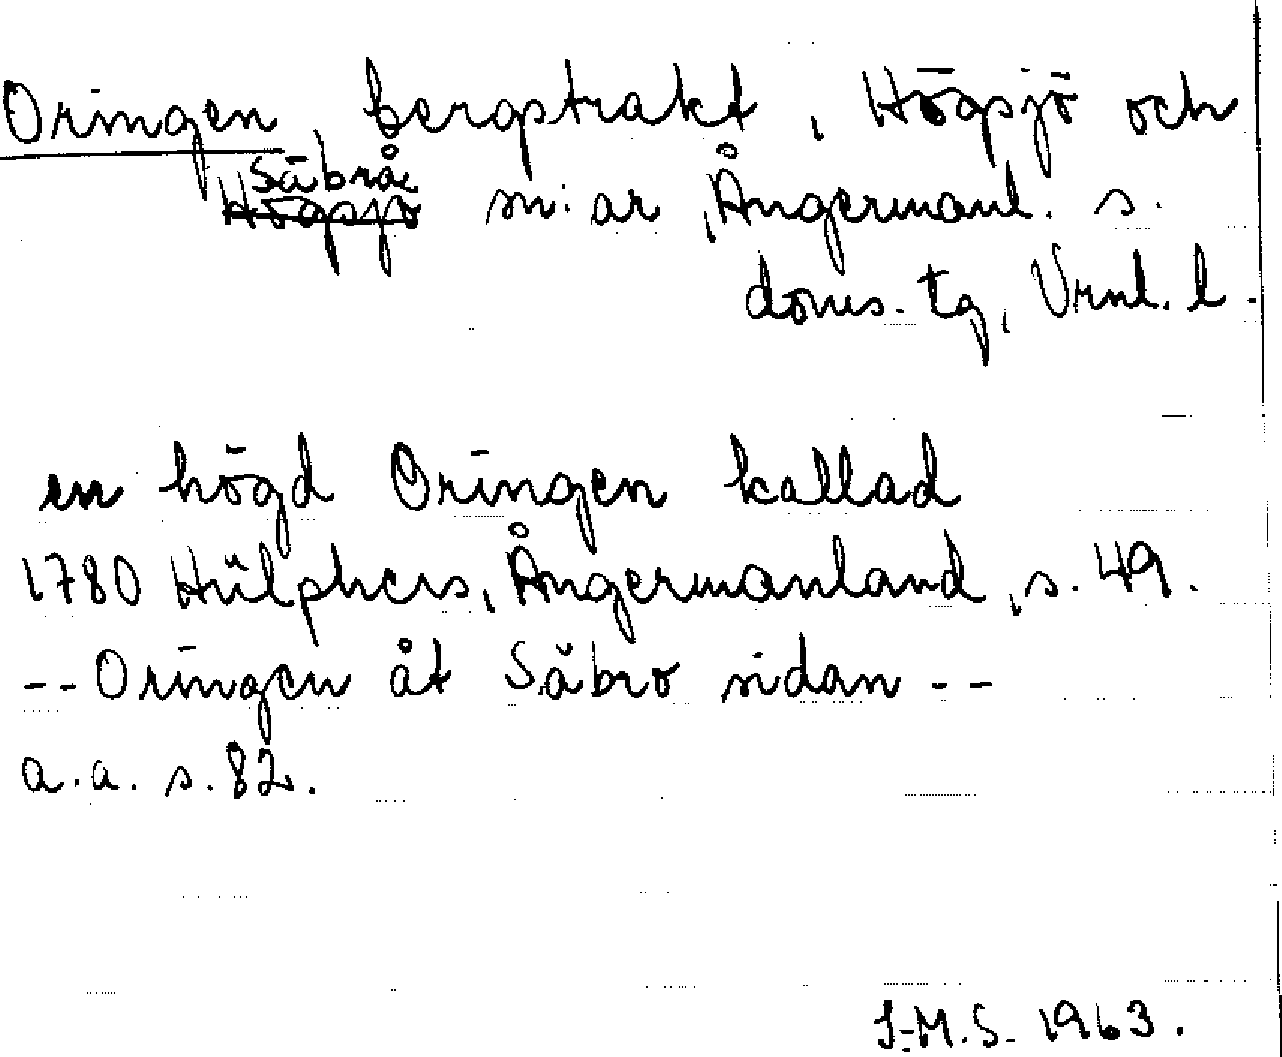 Oringen, bergstrakt, Högsjö och
Säbrå
Högsjö sn:ar, Ångermanl. s.
doms. tg, Vrnl. l.
en högd Oringen kallad
1780 Hülphers, Ångermanland, s. 49.
-- Oringen åt Säbro sidan --
a.a. s. 82.
I-M.S. 1963.